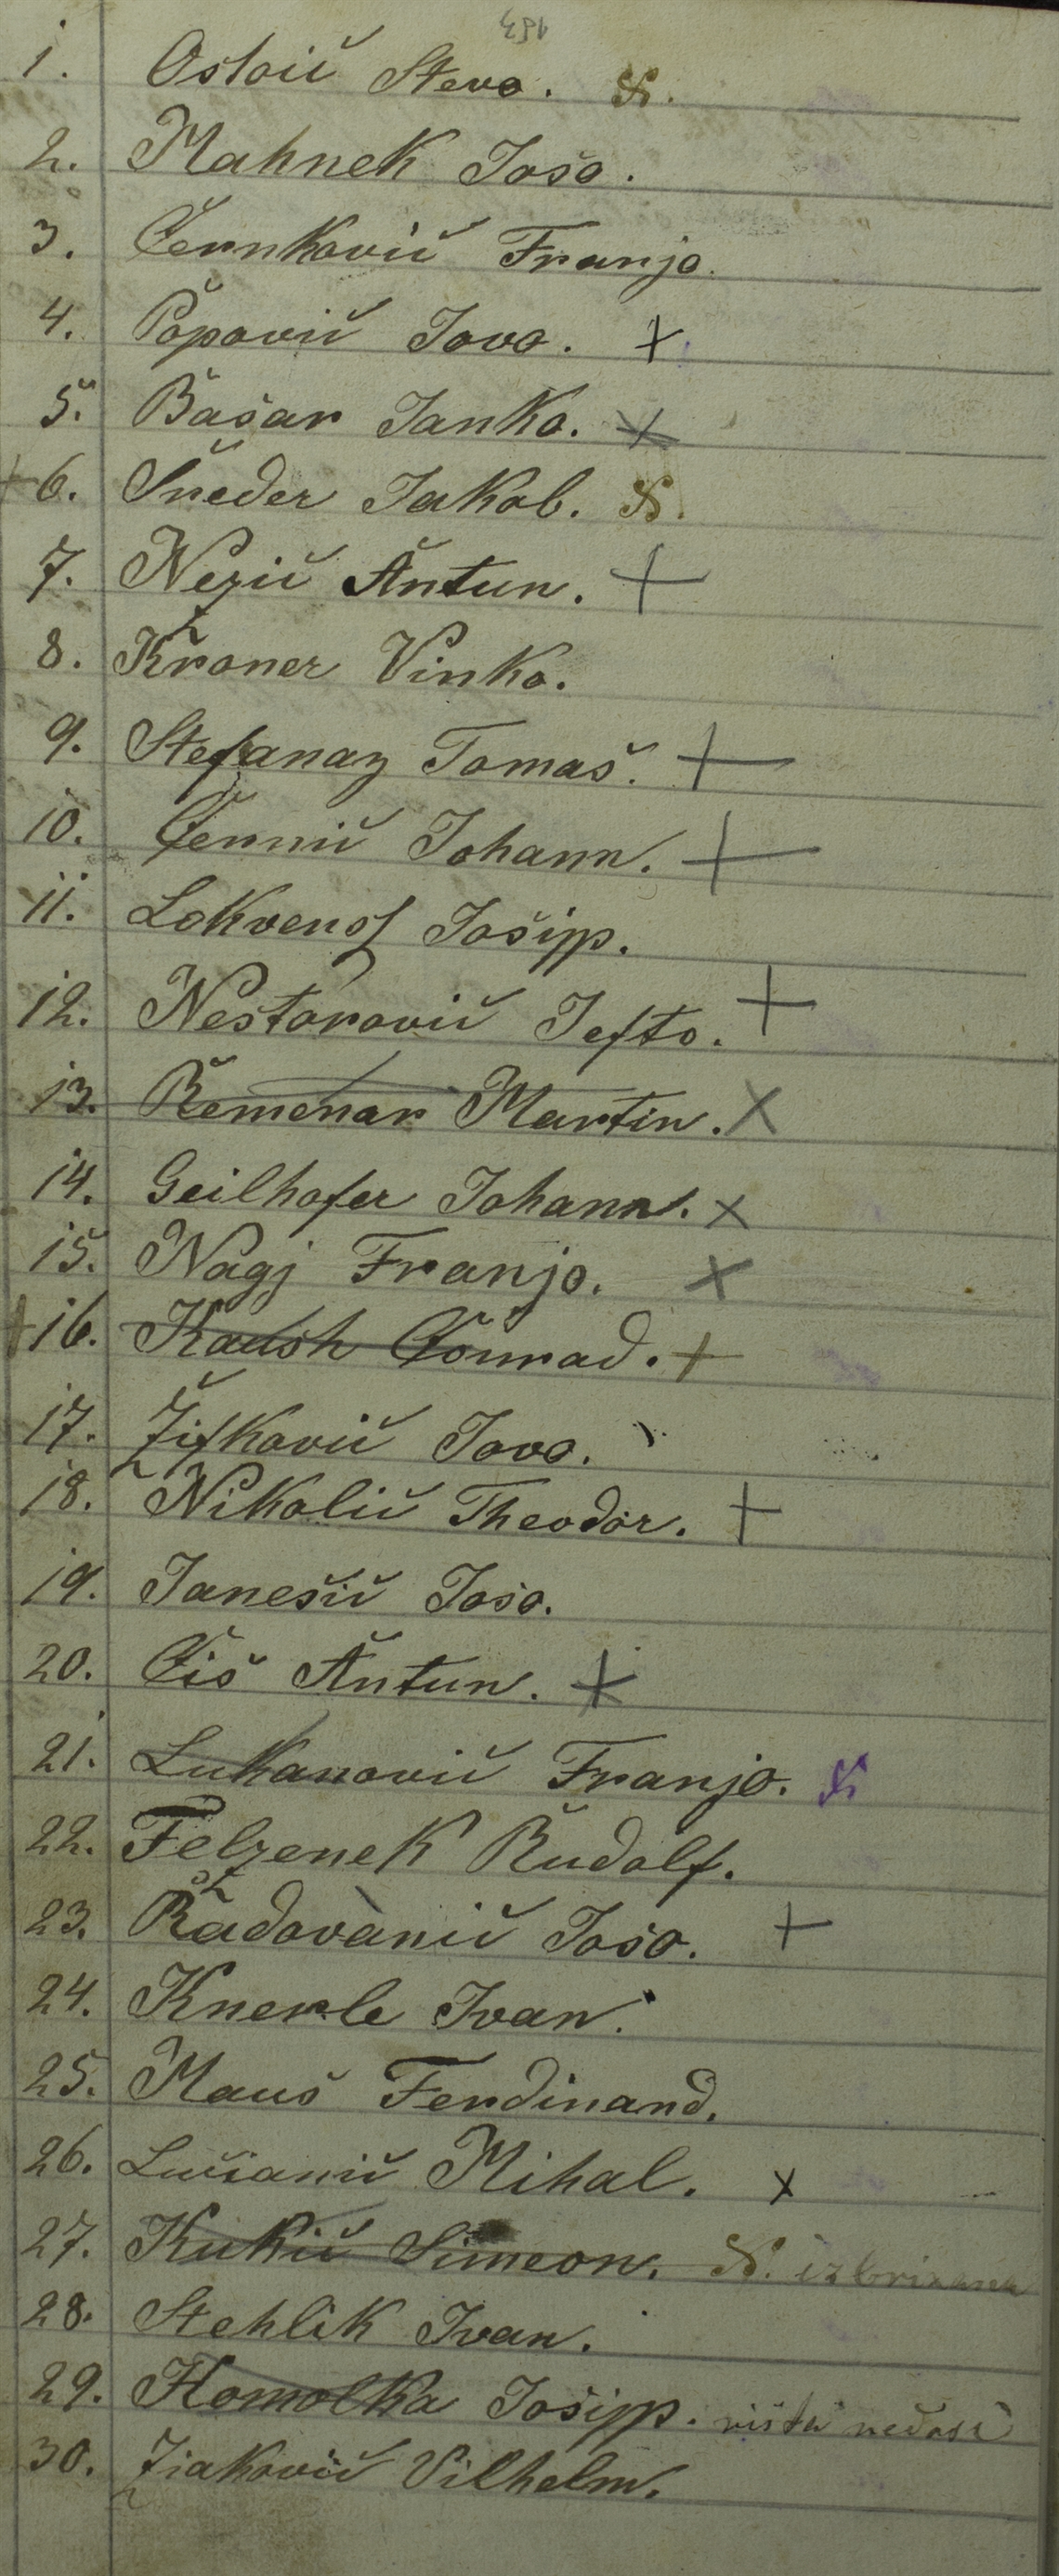 1. Ostoič Stevo. N.
2. Mahnek Joso.
3. Černkovič Franjo.
4. Popovič Jovo. +
5. Bašar Janko. +
+ 6. Šneder Jakob. N.
7. Nezič Antun. +
8. Kroner Vinko.
9. Stefanaz Tomaš. +
10. Černič Johann. +
11. Lokvenc Josipp.
12. Nestorovič Jefto. +
13. Remenar Martin. X
14. Geilhofer Johann. X
15. Nagj Franjo. X
+ 16. Kaush Conrad. +
17. Žifkovič Jovo.
18. Nikolič Theodor. +
19. Janešič Joso.
20. Čiš Antun. +
21. Lukanovič Franjo. N
22. Felzenek Rudolf.
23. Radovanič Joso. +
24. Knerle Ivan.
25. Maus Ferdinand.
26. Lučanič Mihal. x
27. Kukič Simeon. N. izbrisan
28. Stehlik Ivan.
29. Homolka Josipp. ništa
30. Ziakovič Vilhelm.